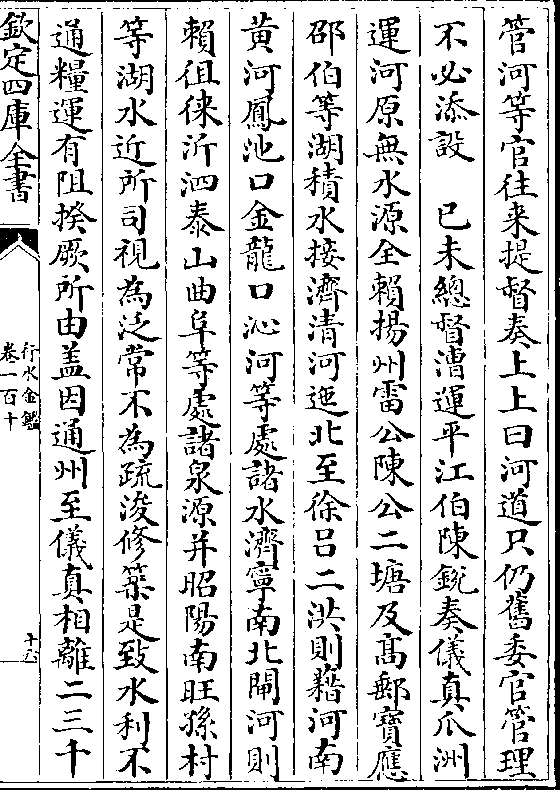 管河等官往来提督奏上上曰河道只仍舊委官管理
不必添設　已未總督漕運平江伯陳銳奏儀真瓜洲
運河原無水源全賴揚州雷公陳公二塘及髙郵寳應
邵伯等湖積水接濟清河迤北至徐吕二洪則藉河南
黄河鳳池口金龍口沁河等處諸水濟寧南北閘河則
賴徂徕沂泗泰山曲阜等處諸泉源并昭陽南旺孫村
等湖水近所司視為泛常不為疏浚修築是致水利不
通糧運有阻揆厥所由盖因通州至儀真相離二三千
欽定四庫全書
行水金鑑
卷一百十